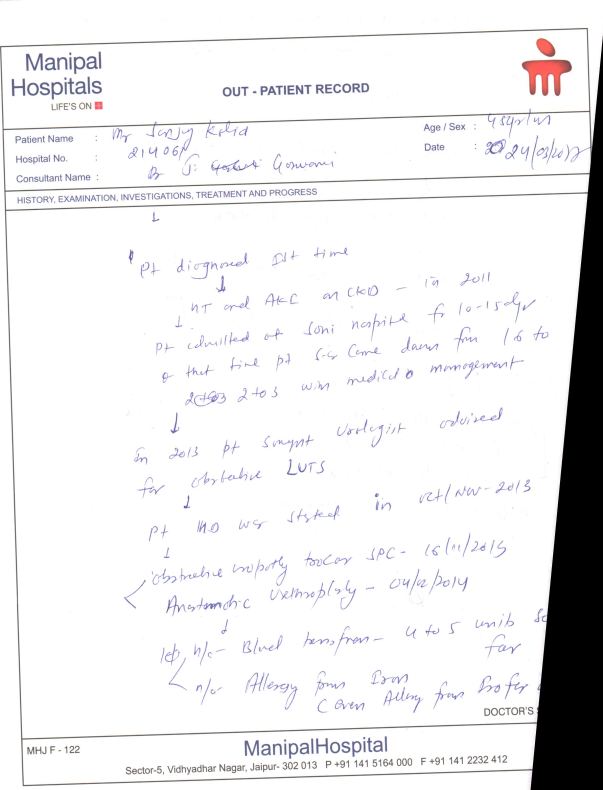 Manipal
Hospitals
LIFE'S ON
OUT - PATIENT RECORD
Patient Name :
Mr Sanjy
Age / Sex :
Hospital No. :
21406
Date :
24/03/2017
Consultant Name :
Dr G. Goswami
HISTORY, EXAMINATION, INVESTIGATIONS, TREATMENT AND PROGRESS
Pt diognosed Ist time
HT and AKC on CKD - in 2011
Pt admitted at Soni hospital for 10-15 dyr
that time pt S-cr Came down from 16 to
2 to 3 with medical management
In 2013 pt Urologist advised
for obstructive LUTS
Pt HD was started in oct/Nov-2013
obstructive trocar SPC - 16/11/2013
Anastomotic Urethroplasty - 04/02/2014
h/o - Blood transfusion - 4 to 5 units So
far
h/o Allergy from Iron
Allergy from
DOCTOR'S
MHJ F - 122
ManipalHospital
Sector-5, Vidhyadhar Nagar, Jaipur- 302 013 P +91 141 5164 000 F +91 141 2232 412